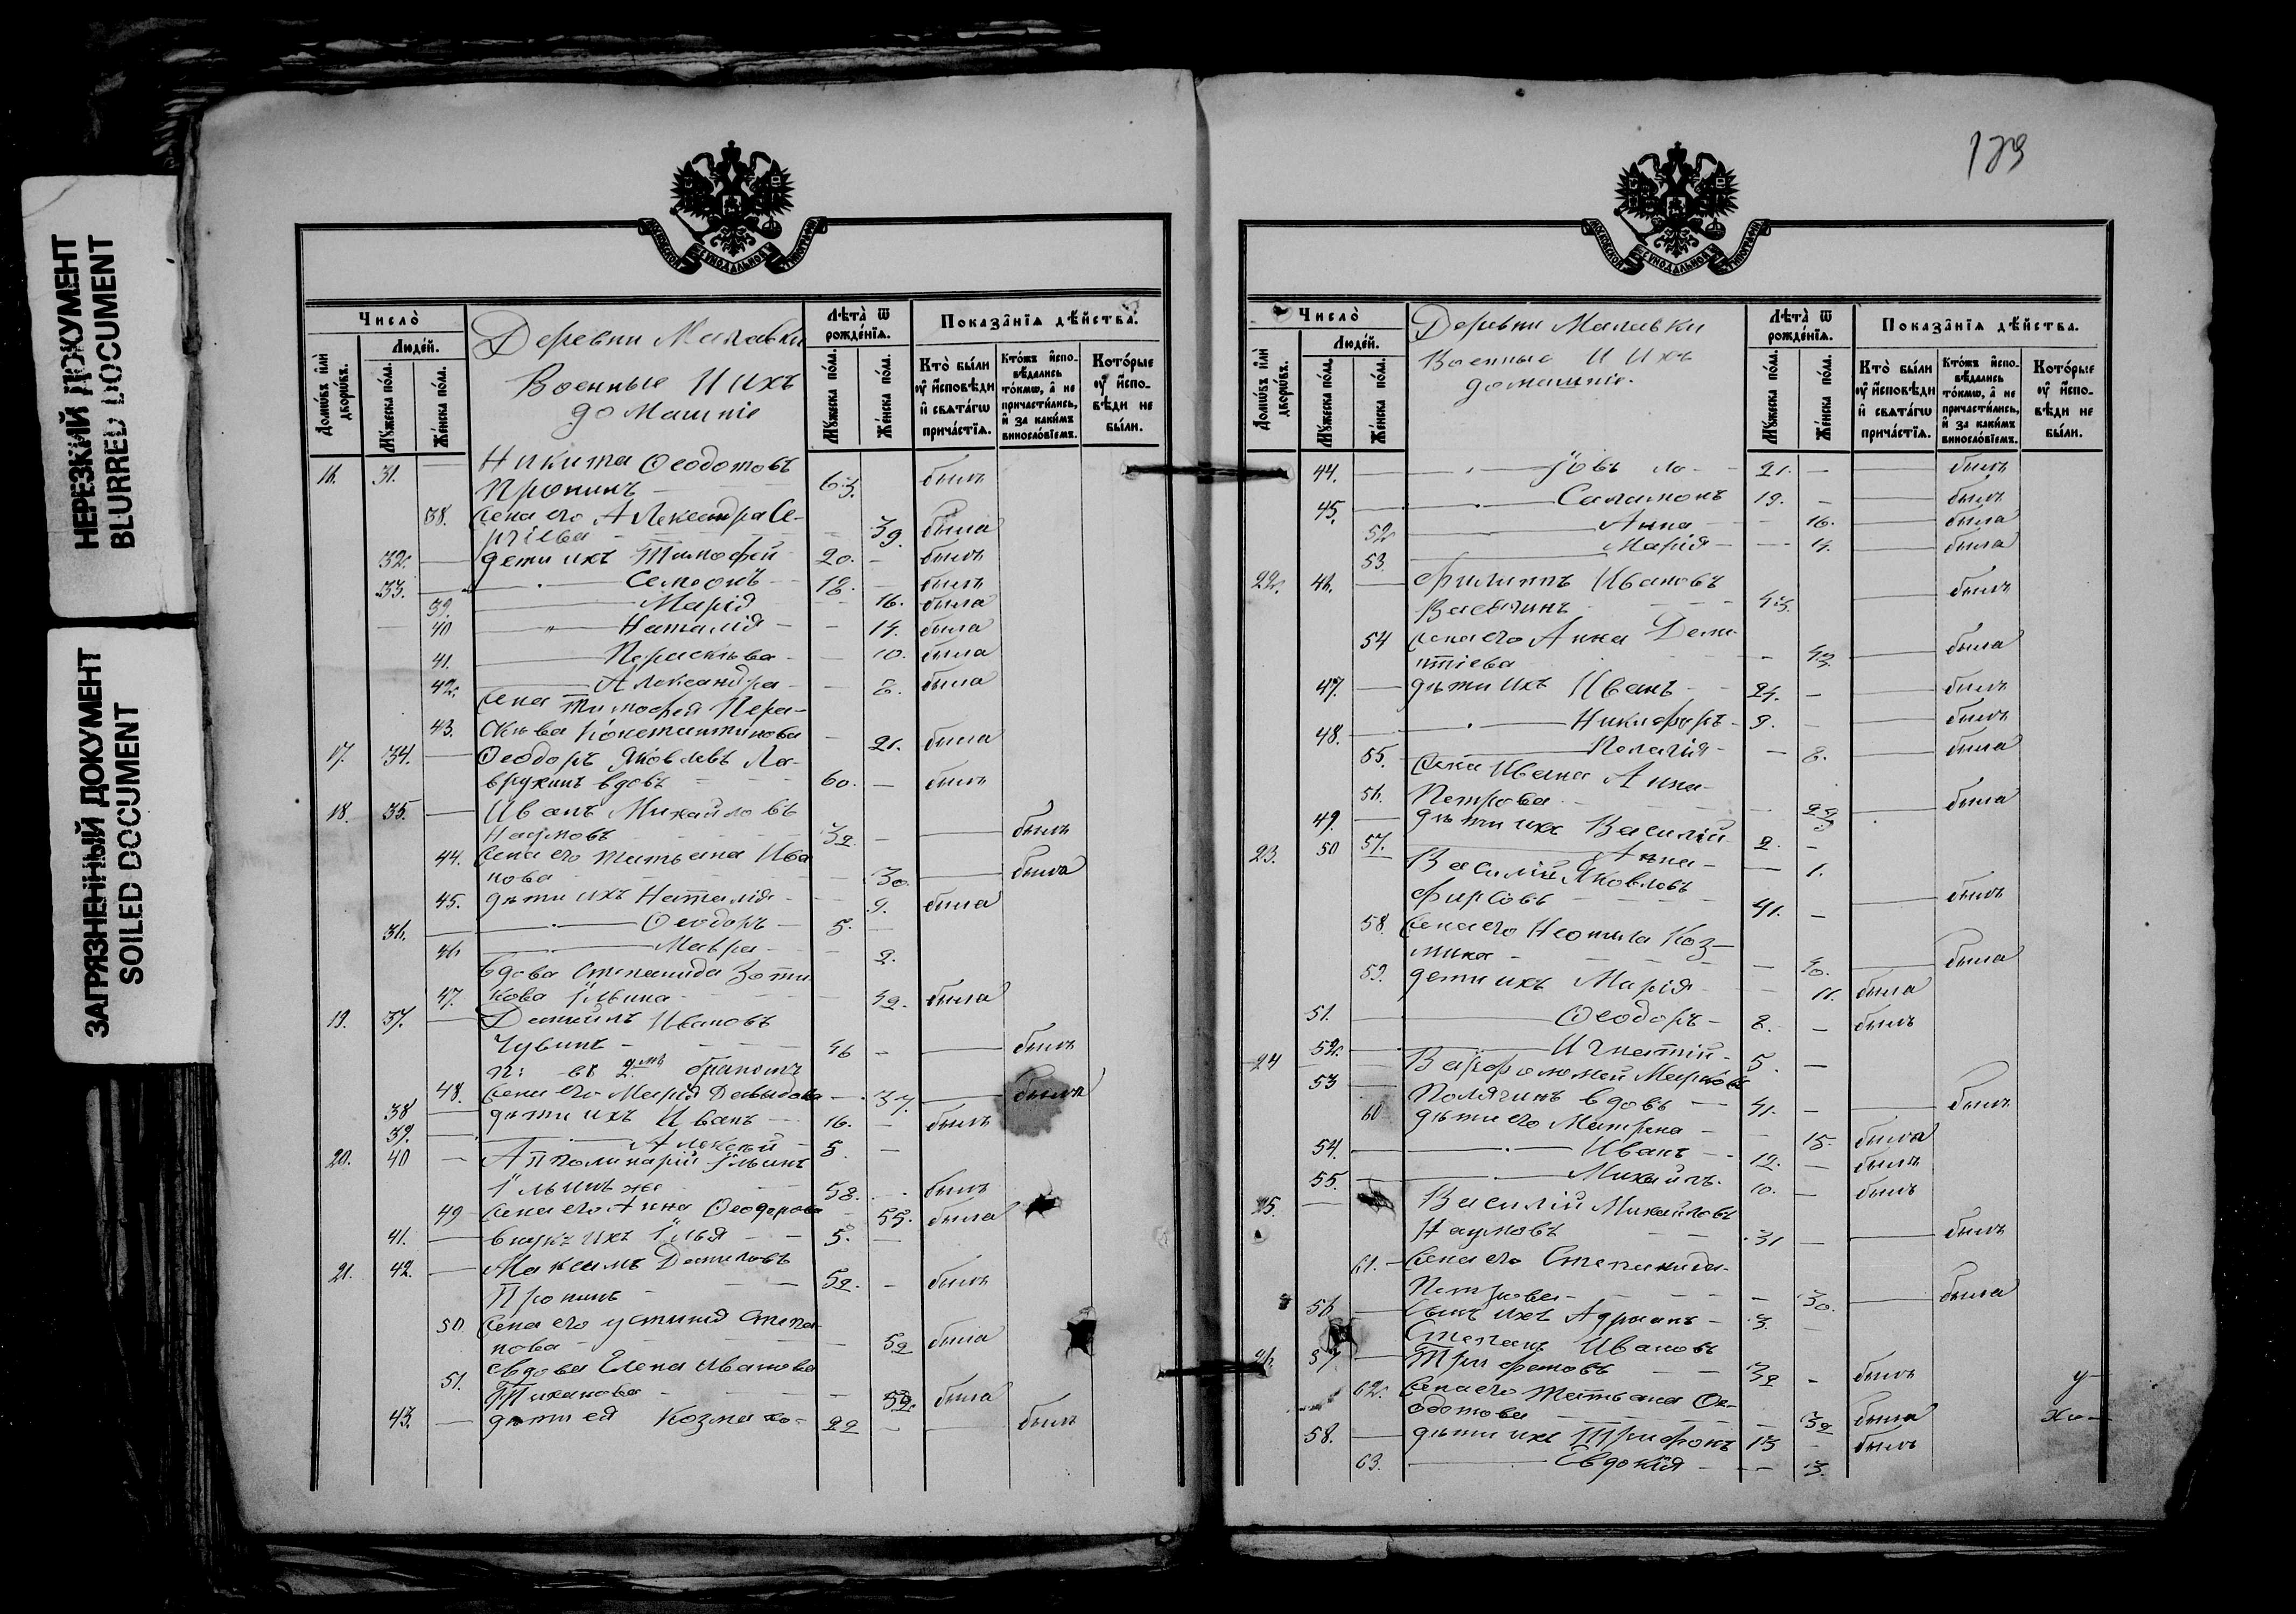 НЕРЕЗКИЙ ДОКУМЕНТ
BLURRED DOCUMENT
ЗАГРЯЗНЕННЫЙ ДОКУМЕНТ
SOILED DOCUMENT
МОСКОВСКОЙ СѴНОДАЛЬНОЙ ТИПОГРАФІИ
Число̀
Людей.
Домѡвъ и҆лѝ дворѡвъ.
Мꙋжеска пола.
Женска пола.
Деревни Малавки
Военные И ихъ
домашніе
Лѣта̀ ѿ рожденїѧ.
Мꙋжеска пола.
Женска пола.
Показанїѧ дѣйства.
Кто̀ были ᲂу҆ и҆сповѣди и҆ свѧтагѡ причастїѧ.
Ктожъ и҆сповѣдались токмѡ, а҆ не причастились, и҆ за какимъ винословїемъ.
Которые ᲂу҆ и҆сповѣди не были.
16. 31. — Никита Ѳеодотовъ
Пронинъ — 63. былъ
38. Жена его Александра Се-
ргіева — 39. была
32. — дети ихъ Тимофей 20. — былъ
33. — Семеонъ — 18. — былъ
39. — Марія — 16. была
40 — " — Наталія — — 14. была
41. — Параскева — — 10. была
42. — Александра — — 8. была
Жена Тимофея Пара-
43. скѣва Константинова — 21. была
17. 34. — Ѳеодоръ Яковлевъ Ла-
врухинъ вдовъ 60. — былъ
18. 35. — Иванъ Михайловъ
Наумовъ 32. — — былъ
44. Жена его Татьяна Ива
нова — 30. — была
45. дѣти ихъ Наталія — 9. была
36. — Ѳеодоръ — 5. —
46 — Мавра — — 2.
Вдова Степанида Зоти
47. кова Ильина — 42. была
19. 37. — Даніилъ Ивановъ
Чувинъ — 46 — — былъ
п: — въ 2мъ бракомъ
48. Жена его Марія Давыдова — 37. — была
38 — дѣти ихъ Иванъ — 16. — былъ
39. — Алексѣй — 5. —
20. 40 — Апполинарій Ильинъ
Ильинъ же 58. — былъ
49 Жена его Анна Ѳеодорова — 55. была
41. — внукъ ихъ Илья — 5. —
21. 42. — Максимъ Даниловъ
Пронинъ — 52. — былъ
50. Жена его Устинія Степа-
нова — 52 была
51. Вдова Елена Иванова
Тиханова — 52. была
43. — дѣти ея Козма хо- 22 — — былъ
179
МОСКОВСКОЙ СѴНОДАЛЬНОЙ ТИПОГРАФІИ
Число̀
Людей.
Домѡвъ и҆лѝ дворѡвъ.
Мꙋжеска пола.
Женска пола.
Деревни Малавки
Военные И ихъ
домашніе.
Лѣта̀ ѿ рожденїѧ.
Мꙋжеска пола.
Женска пола.
Показанїѧ дѣйства.
Кто̀ были ᲂу҆ и҆сповѣди и҆ свѧтагѡ причастїѧ.
Ктожъ и҆сповѣдались токмѡ, а҆ не причастились, и҆ за какимъ винословїемъ.
Которые ᲂу҆ и҆сповѣди не были.
44. — Іовъ хо — 21. — — былъ
45. — Саламонъ 19. — — былъ
52 — Анна — — 16. — была
53 — Марія — — 14. — была
22. 46. — Филиппъ Ивановъ
Васягинъ — 43. — былъ
54 Жена его Анна Деме
нтіева — 42 — была
47. — дѣти ихъ Иванъ — 24. — — былъ
48. — Никифоръ — 9. — — былъ
55. — Пелагія — — 8. — была
Жена Ивана Анна
56. Петрова — 22 — была
49. — дѣти ихъ Василій 2. —
57. — Анна — — 1.
23. 50 Василій Яковлевъ
Фирсовъ — 41. — — былъ
58. Жена его Неонила Коз-
мина — 40. — была
59. дети ихъ Марія — 11. была
51. — Ѳеодоръ — 8. — былъ
52. — Игнатій — 5. —
24 53 — Варфоломей Марковъ
Полячинъ вдовъ — 41. — — былъ
60 дѣти его Матрена — — 15. была
54. — Иванъ — 12. — былъ
55. — Михаилъ. 10. — былъ
25. — Василій Михайловъ
Наумовъ — 31 — — былъ
61. — Жена его Степанида
Петрова — 30. — была
56 — сынъ ихъ Адрианъ — 3. —
26. 57 — Степанъ Ивановъ
Трифановъ — 32 — былъ
62. Жена его Татьяна Ѳе-
одотова — 32 была
58. — дѣти ихъ Трифонъ 13 — былъ
63. — Евдокія — — 3.